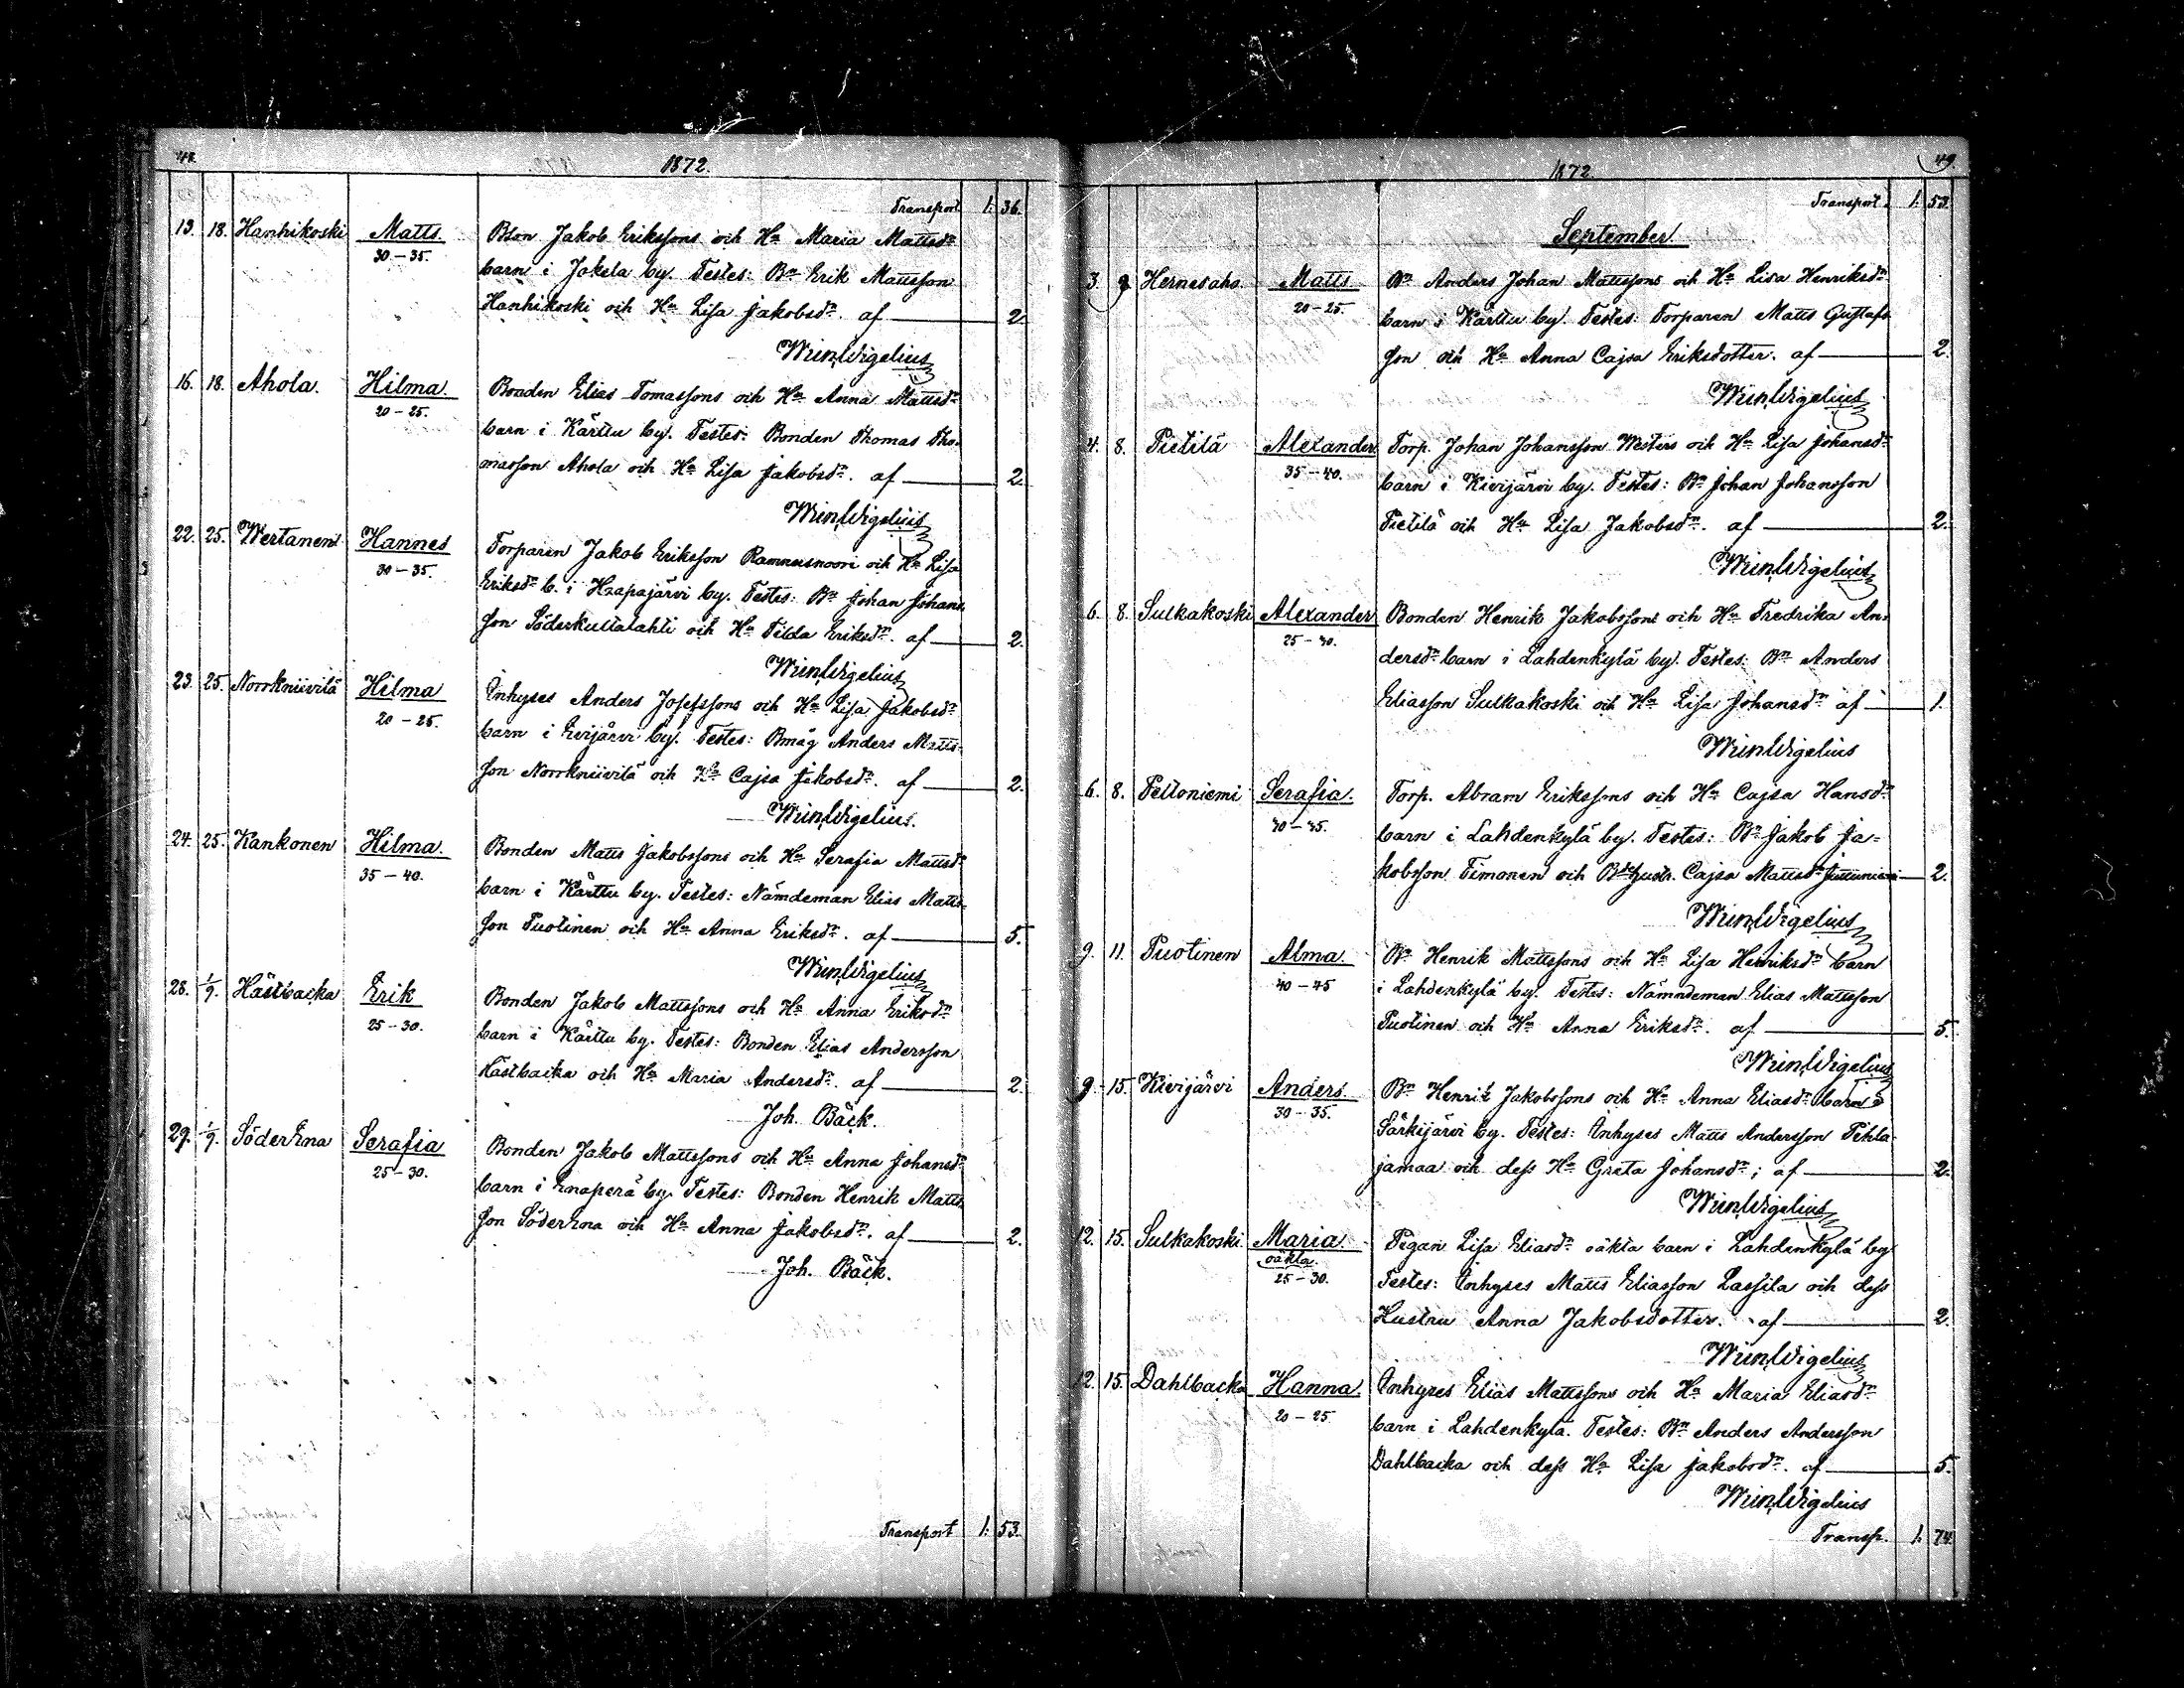 48.
1872.
Transport 1. 36.
13. 18. Hanhikoski Matts Bdon Jakob Erikssons och Hu Maria Mattsdr
30–35. barn i Jokela by. Testes: Bn Erik Mattsson
Hanhikoski och Hu Lisa Jakobsdr. af — 2.
Wm Wigelius
16. 18. Ahola. Hilma. Bonden Elias Tomassons och Hu Anna Mattsdr
20–25. barn i Kärttu by. Testes: Bonden Thomas Tho-
masson Ahola och Hu Lisa Jakobsdr. af — 2.
Wm Wigelius
22. 25. Wertanen Hannes Torparen Jakob Eriksson och Hu Lisa
30–35. Eriksdr b. i Haapajärvi by. Testes: Bn Johan Johans
son Söderkultalahti och Hu Tilda Eriksdr. af — 2.
Wm Wigelius
23. 25. Norrkniivilä Hilma Inhyses Anders Josefssons och Hu Lisa Jakobsdr
20–25. barn i Evijärvi by. Testes: Bmåg Anders Matts-
son Norrkniivilä och Hu Cajsa Jakobsdr. af — 2.
Wm Wigelius.
24. 25. Kankonen Hilma. Bonden Matts Jakobssons och Hu Serafia Mattsdr
35–40. barn i Kärttu by. Testes: Nämdeman Elias Matts-
son Puotinen och Hu Anna Eriksdr. af — 5.
Wm Wigelius
28. 1/9. Hästbacka Erik Bonden Jakob Mattssons och Hu Anna Eriksdr
25–30. barn i Kärttu by. Testes: Bonden Elias Andersson
Hästbacka och Hu Maria Andersdr. af — 2.
Joh. Bäck.
29. 1/9. SöderEna Serafia Bonden Jakob Mattssons och Hu Anna Johansdr
25–30. barn i Enaperä by. Testes: Bonden Henrik Matts
son SöderEna och Hu Anna Jakobsdr. af — 2.
Joh. Bäck.
Transport 1. 53.
49.
1872
Transport. 1. 53.
September
3. 8 Hernesaho Matts Bn Anders Johan Mattssons och Hu Lisa Henriksdr
20–25. barn i Kärttu by. Testes: Torparen Matts Gustafs
son och Hu Anna Cajsa Eriksdotter. af — 2.
Wm Wigelius
4. 8. Pietilä Alexander Torp. Johan Johansson Westers och Hu Lisa Johansdr
35–40. barn i Kivijärvi by. Testes: Bn Johan Johansson
Pietilä och Hu Lisa Jakobsdr. af — 2.
Wm Wigelius
6. 8. Sulkakoski Alexander Bonden Henrik Jakobssons och Hu Fredrika An-
25–30. dersdr barn i Lahdenkylä by. Testes: Bn Anders
Eliasson Sulkakoski och Hu Lisa Johansdr af — 1.
Wm Wigelius
6. 8. Peltoniemi Serafia. Torp. Abram Erikssons och Hu Cajsa Hansdr
barn i Lahdenkylä by. Testes: Bn Jakob Ja-
kobsson Timonen och Cajsa Mattsdr — 2.
Wm Wigelius
9. 11. Puotinen Alma. Bn Henrik Mattssons och Hu Lisa Henriksdr barn
40–45 i Lahdenkylä by. Testes: Nämndeman Elias Mattsson
Puotinen och Hu Anna Eriksdr. af — 5.
Wm Wigelius
9. 15. Kivijärvi Anders. Bn Henrik Jakobssons och Hu Anna Eliasdr barn i
30–35. Särkijärvi by. Testes: Inhyses Matts Andersson Pihla
jamaa och dess Hu Greta Johansdr; af — 2.
Wm Wigelius
12. 15. Sulkakoski. Maria. Pigan Lisa Eliasdr oäkta barn i Lahdenkylä by
oäkta.
25–30. Testes: Inhyses Matts Eliasson Lassila och dess
Hustru Anna Jakobsdotter. af — 2.
Wm Wigelius
12. 15. Dahlbacka Hanna. Inhyses Elias Mattssons och Hu Maria Eliasdr
20–25 barn i Lahdenkylä. Testes: Bn Anders Andersson
Dahlbacka och dess Hu Lisa Jakobsdr. af — 5.
Wm Wigelius
Transp. 1. 74.